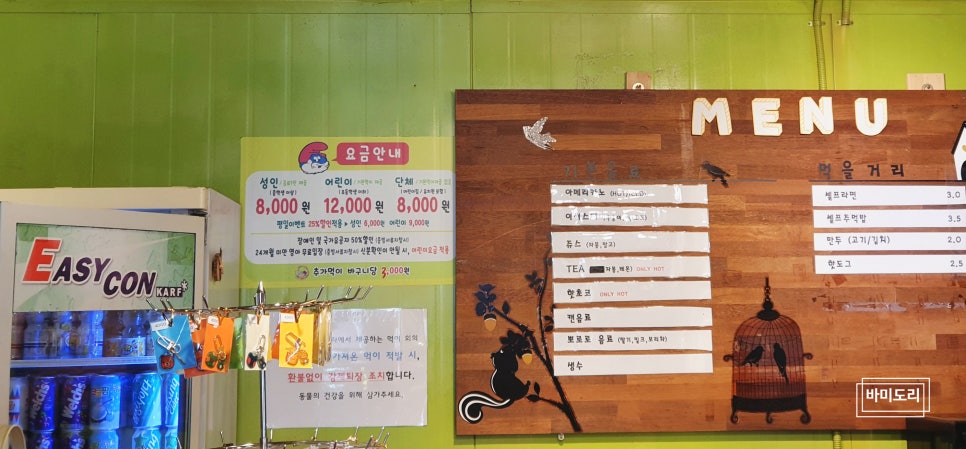 요금안내
성인 어린이 단체
8,000원 12,000원 8,000원
평일이벤트 25%할인적용 > 성인 6,000원 어린이 9,000원
장애인 및 국가유공자 50%할인 (증빙서류지참시)
24개월 미만 영아 무료입장 (증빙서류지참시) 신분확인이 안될 시, 어린이요금 적용
추가먹이 바구니당 3,000원
EASY
CON
KARF
제공하는 먹이 외의
먹이 적발 시,
환불없이 강제퇴장 조치합니다.
동물의 건강을 위해 삼가주세요.
MENU
음료
아메리카노 (HOT/ICED)
쥬스 (자몽,망고)
TEA 자몽,레몬) ONLY HOT
핫초코 ONLY HOT
캔음료
뽀로로 음료 (딸기,밀크,보리차)
생수
먹을거리
셀프라면 3,0
셀프주먹밥 3,5
만두 (고기/김치) 2,0
핫도그 2,5
Welch's
바미도리